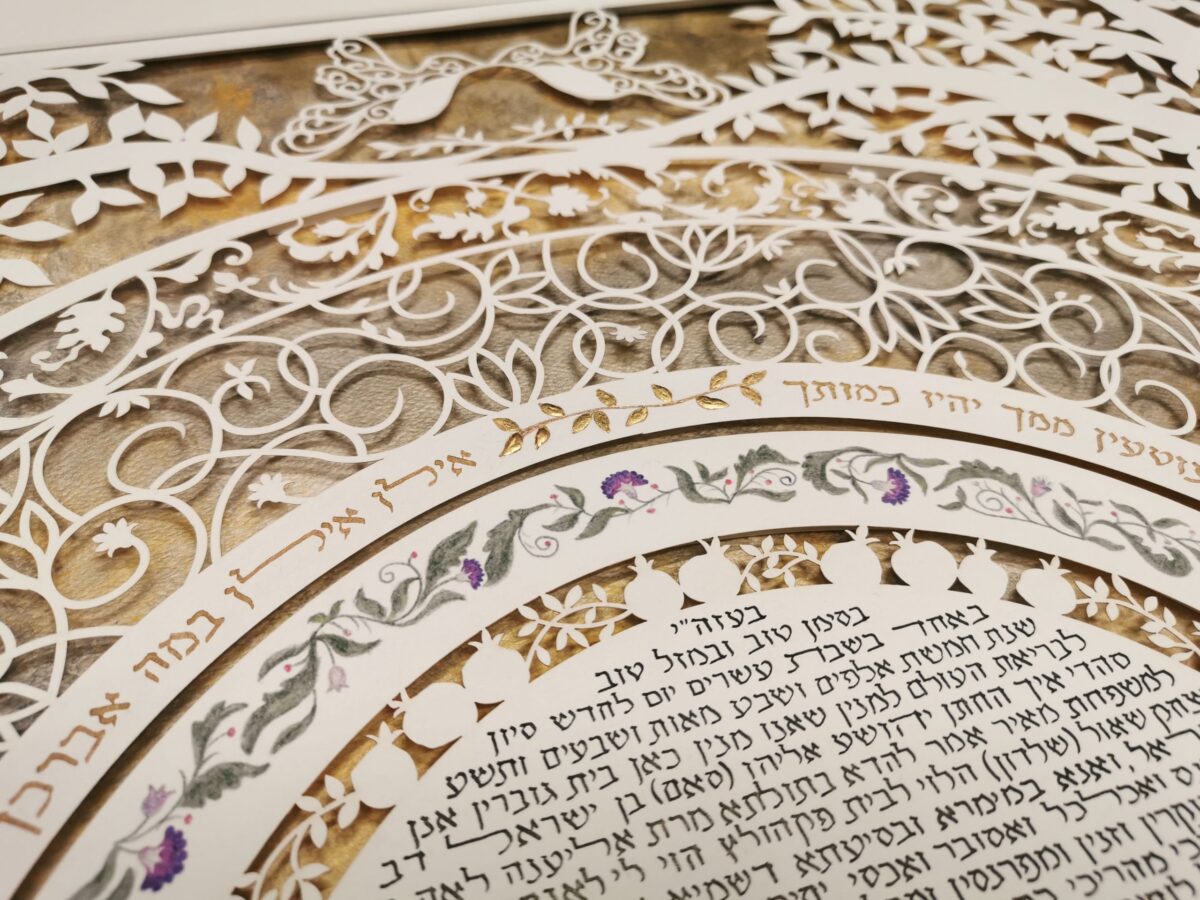 ממך יהיו כמותך
אילן אילן במה אברכך
בעזה"י
בסימן טוב ובמזל טוב
באחד בשבת עשרים יום לחדש סיון
שנת חמשת אלפים ושבע מאות ושבעים ותשע
לבריאת העולם למנין שאנו מנין כאן בית גוברין אנן
סהדי איך החתן יהושע אליהו (סאם) בן ישראל דב
למשפחת מאיר אמר להדא בתולתא מרת אליענה לאה
שאול (שלדון) הלוי לבית פקהולץ הוי לי
ואנא במימרא ובסיעתא דשמיא
ואכלכל ואסובר ואכסי
וזנין ומפרנסין
מהריכי